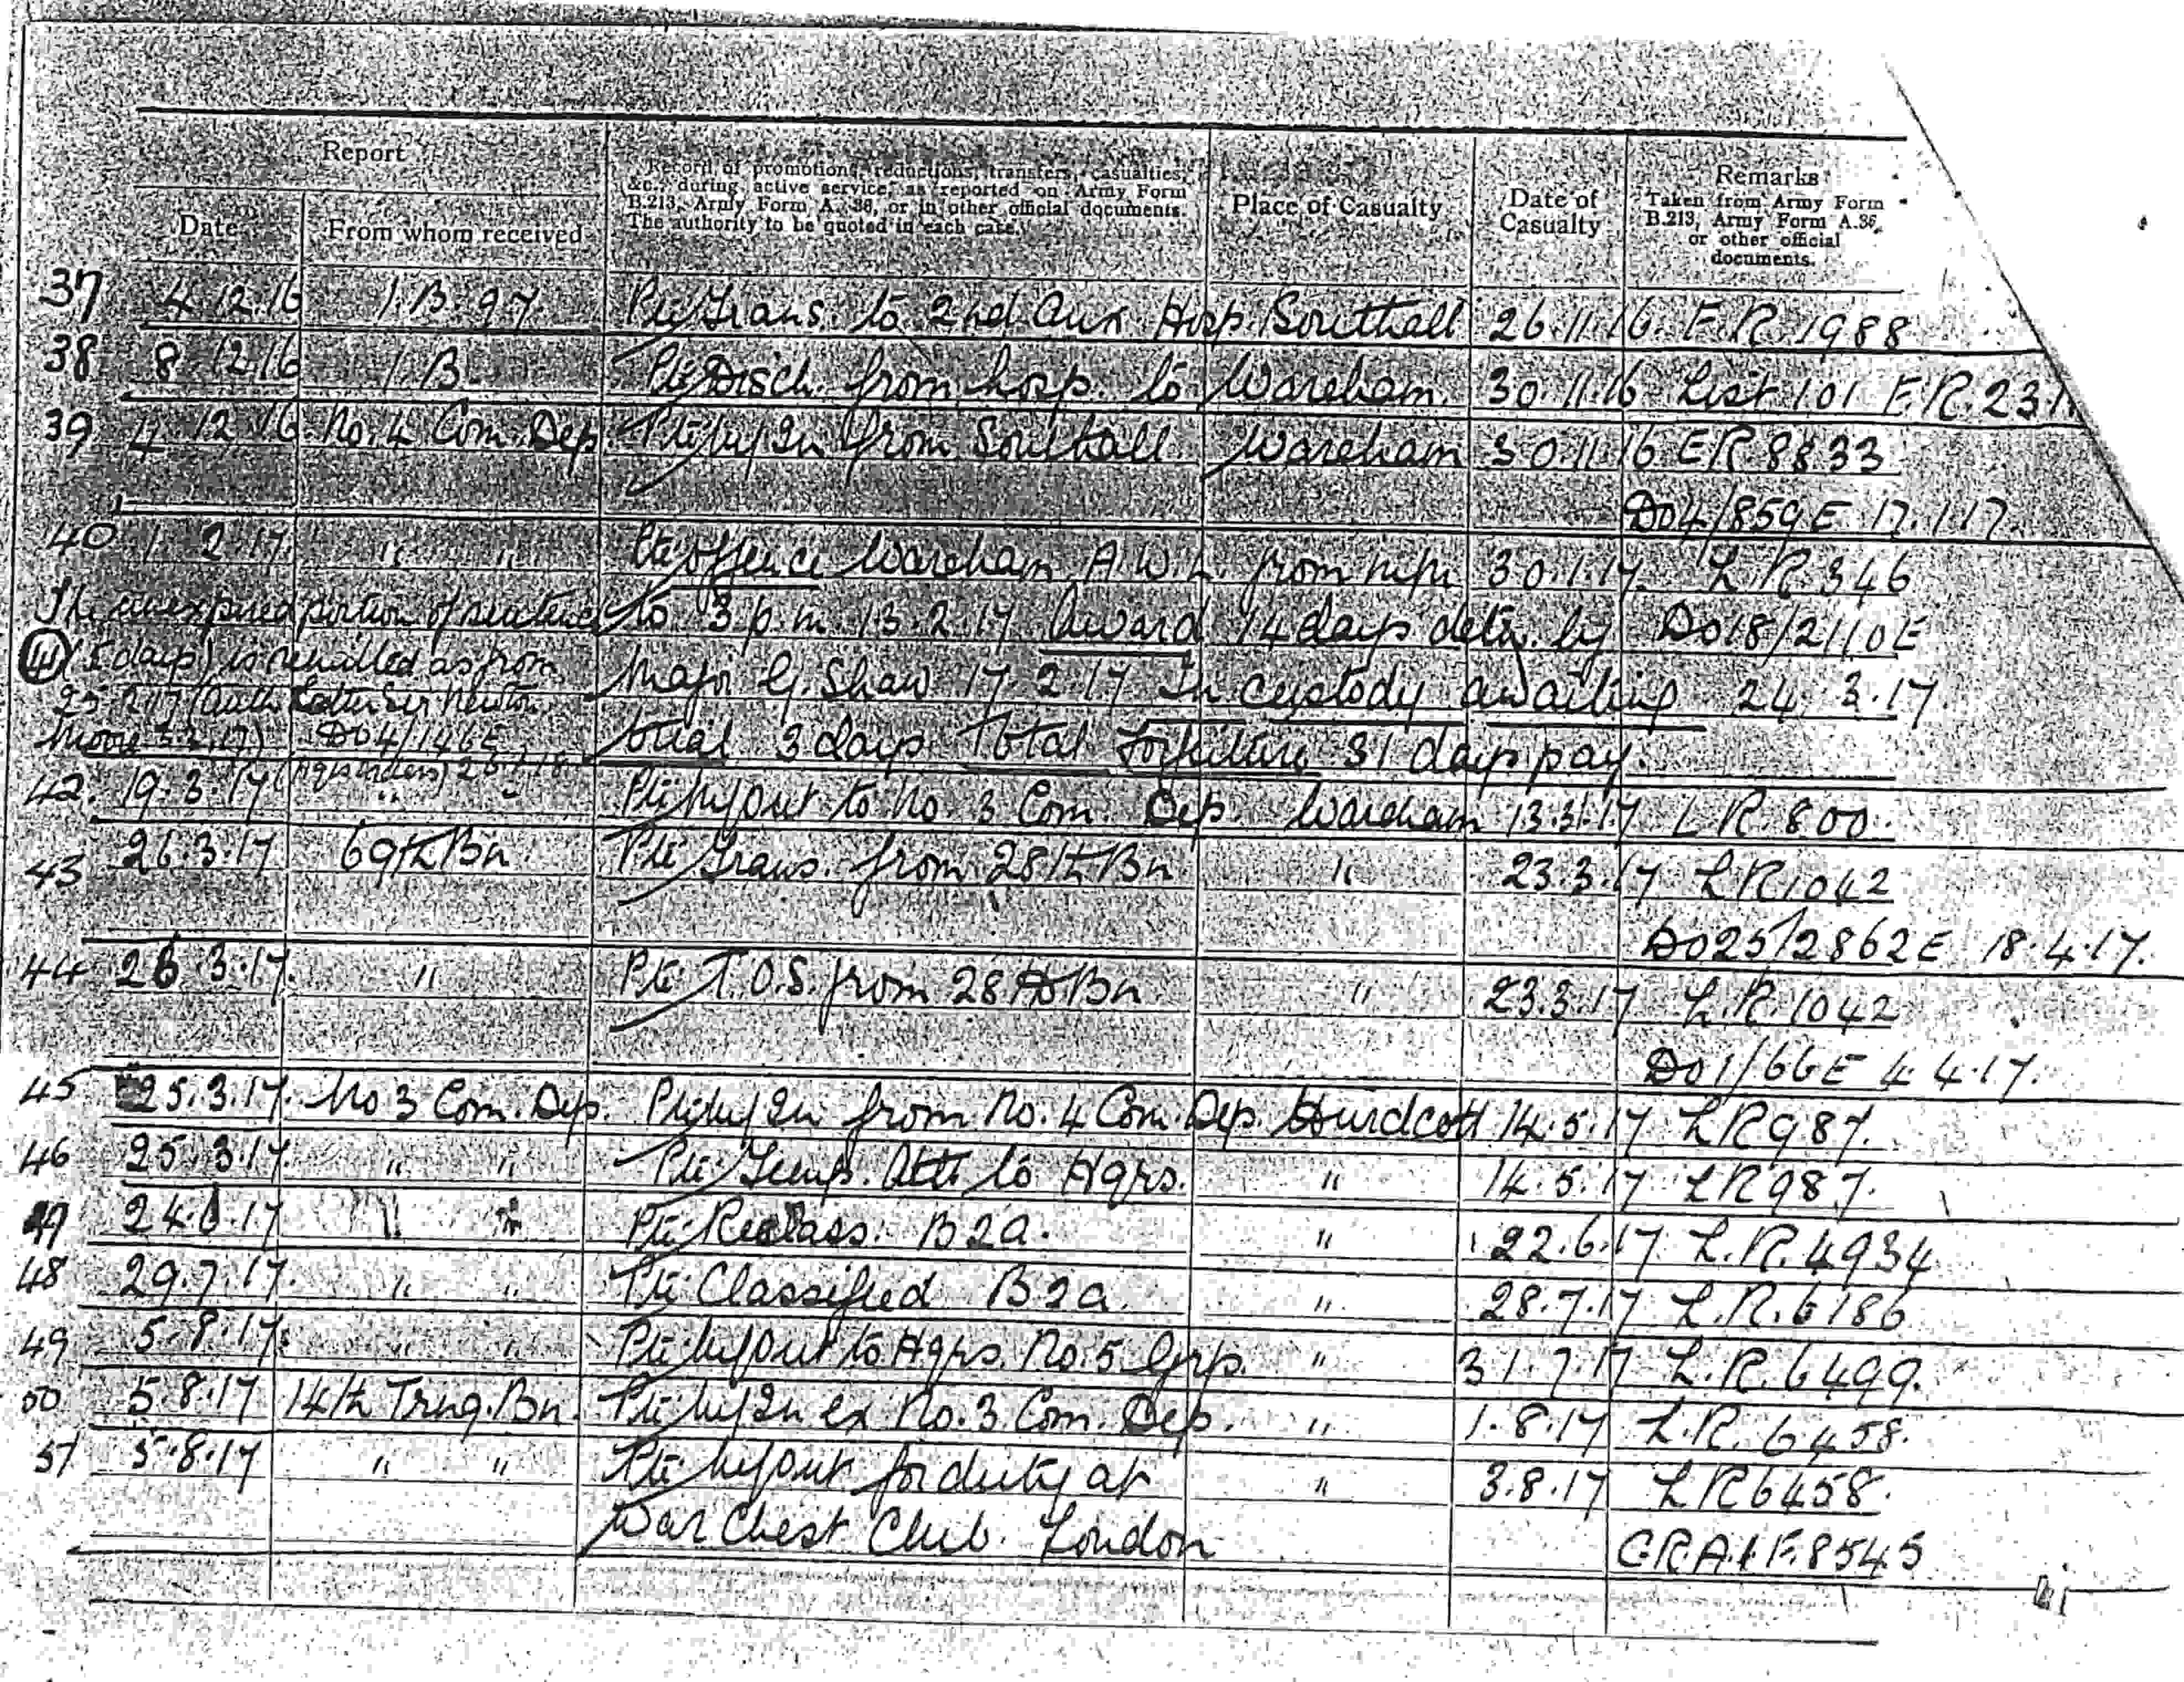 Report
Date
From whom received
Record of promotions, reductions, transfers, casualties,
&c., during active service, as reported on Army Form
B.213, Army Form A. 36, or in other official documents.
The authority to be quoted in each case.
Place of Casualty
Date of
Casualty
Remarks
Taken from Army Form
B.213, Army Form A.36,
or other official
documents.
37 4.12.16 I.B. 97 Pte Trans. to 2nd Aux. Hosp. Southall 26.11.16. E.R. 1988
38 8.12.16 I.B. Pte Disch. from hosp. to Wareham. 30.11.16 List 101 E.R.
39 4.12.16. No. 4 Com. Dep. Pte In from Southall Wareham 30.11.16 ER 8833
Do4/859E 17.1.17.
40 1.2.17. " " Pte offence Wareham A.W.L. from 30.1.17. L.R. 346
The unexpired portion of sentence to 3 p.m. 13.2.17 Award 14 days detn. by Do18/2110E
41 (5 days) is remitted as from Major G. Shaw 17.2.17 In custody awaiting 24.3.17.
(auth Letter Sir Newton
Moore Do4/146E trial 3 days Total forfeiture 31 days pay.
42. 19.3.17 " " Pte M/Out to No. 3 Com. Dep. Wareham 13.3.17 L.R. 800.
43 26.3.17 69th Bn. Pte Trans. from 28th Bn " 23.3.17 L.R 1042
Do25/2862E 18.4.17.
44 26.3.17. " Pte T.O.S. from 28th Bn " 23.3.17 L.R. 1042
Do1/66E 4.4.17.
45 25.3.17. No 3 Com. Dep. Pte M/In from No. 4 Com. Dep. Hurdcott 14.5.17 L R 987.
46 25.3.17. " " Pte Temp. Att to Hqrs. " 14.5.17 L R 987.
24.6.17 " " Pte Reclass. B2a. " 22.6.17 L.R. 4934
48 29.7.17. " " Pte Classified B2a " 28.7.17 L.R. 6186
49 5.8.17. " " Pte M/Out to Hqrs. No. 5 Grp. " 31.7.17 L.R. 6499.
50 5.8.17 14th Trng. Bn. Pte M/In ex No. 3 Com. Dep. " 1.8.17 L.R. 6458.
51 5.8.17 " " Pte M/Out for duty at " 3.8.17 L R 6458.
War Chest Club. London C.R.A.I.F. 8545